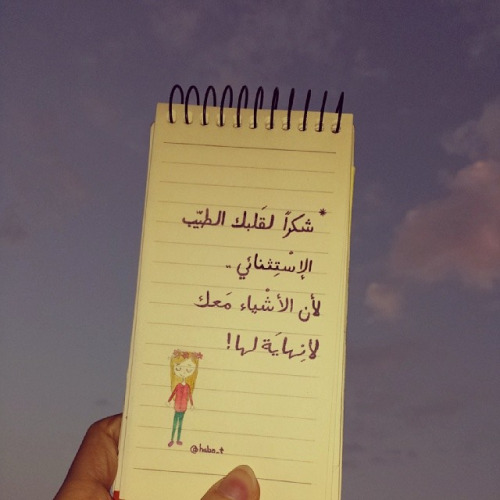 * شكراً لقَلبك الطيّب
الإسْتِثنائي ..
لأن الأشْياء مَعك
لانِهايَة لها!
@heba_t